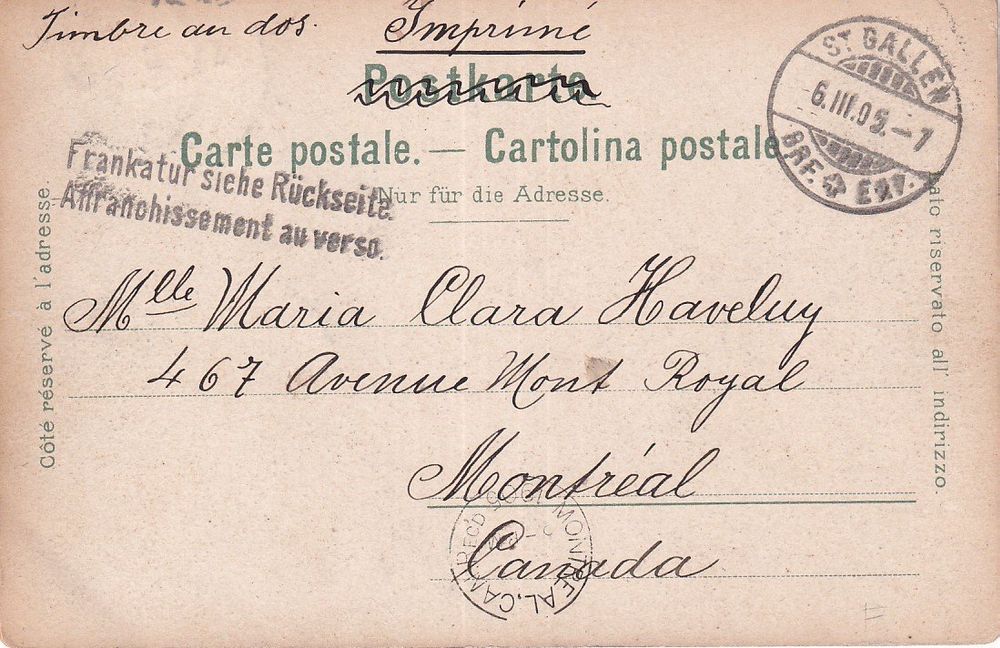 Timbre au dos. Imprimé
Postkarte.
Carte postale. — Cartolina postale
Nur für die Adresse.
Frankatur siehe Rückseite.
Affranchissement au verso.
ST GALLEN
6.III.05.-7
BRF. EXP.
Côté réservé à l'adresse.
Lato riservato all' indirizzo.
Mlle Maria Clara Haveluy
467 Avenue Mont Royal
Montréal
Canada
MONTREAL, CAN. REC'D